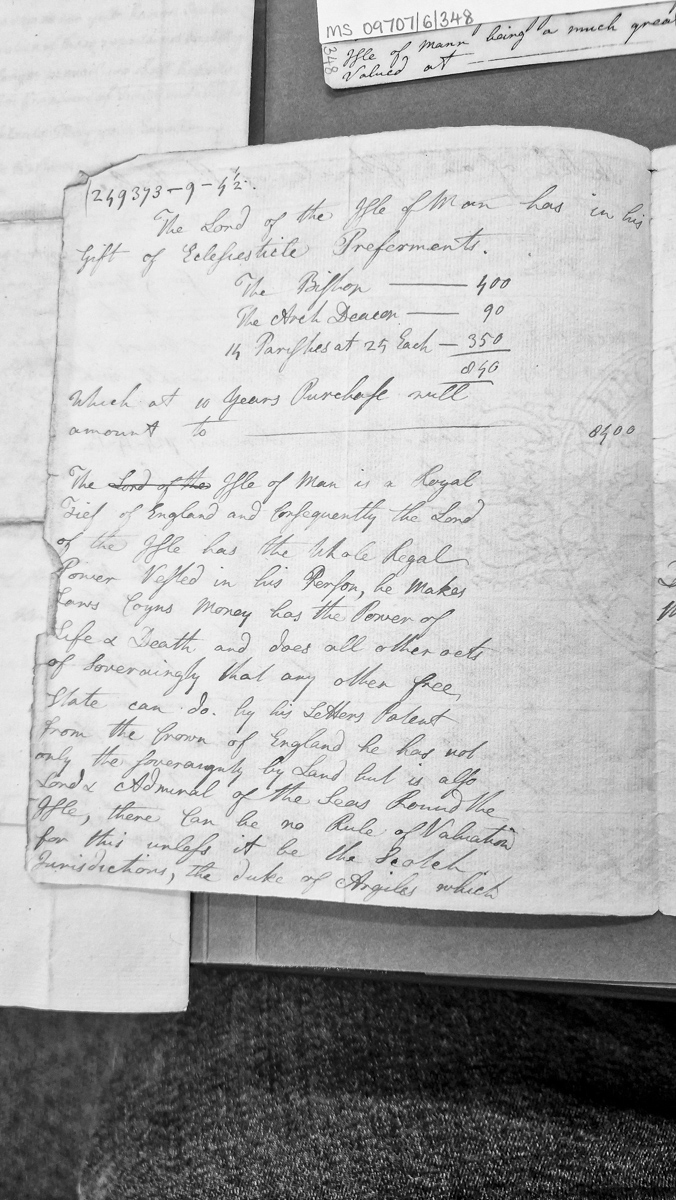 MS 09707/6/348
348
Isle of Mann being a much grea
Valued at
249373-9-4½.
The Lord of the Isle of Man has in his
Gift of Eclesiesticle Preferments.
The Bishop — 400
The Arch Deacon — 90
14 Parishes at 25 Each — 350
840
Which at 10 Years Purchase will
amount to — 8400
The Lord of the Isle of Man is a Royal
Fief of England and Consequently the Lord
of the Isle has the Whole Regal
Power Vested in his Person, he Makes
Laws Coyns Money has the Power of
Life & Death and does all other acts
of Soveraingty that any other free
State can do. by his Letters Patent
from the Crown of England he has not
only the Soveraignty by Land but is also
Lord & Admiral of the Seas Round the
Isle, there Can be no Rule of Valuation
for this unless it be the Scotch
Jurisdictions, the duke of Argiles which